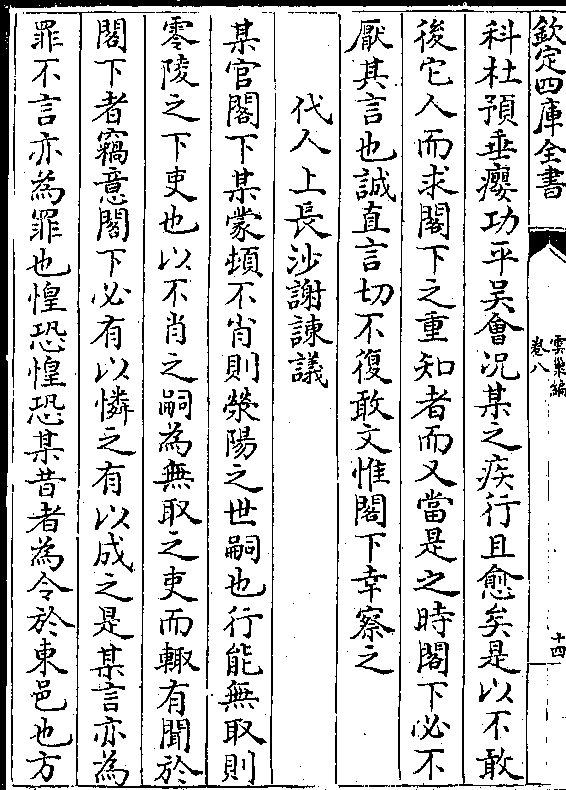 欽定四庫全書
雲巢編
卷八
十四
科杜預垂癭功平吳會况某之疾行且愈矣是以不敢
後它人而求閣下之重知者而又當是之時閣下必不
厭其言也誠直言切不復敢文惟閣下幸察之
代人上長沙謝諫議
某官閣下某蒙頓不肖則滎陽之世嗣也行能無取則
零陵之下吏也以不肖之嗣為無取之吏而輙有聞於
閣下者竊意閣下必有以憐之有以成之是某言亦為
罪不言亦為罪也惶恐惶恐某昔者為令於東邑也方